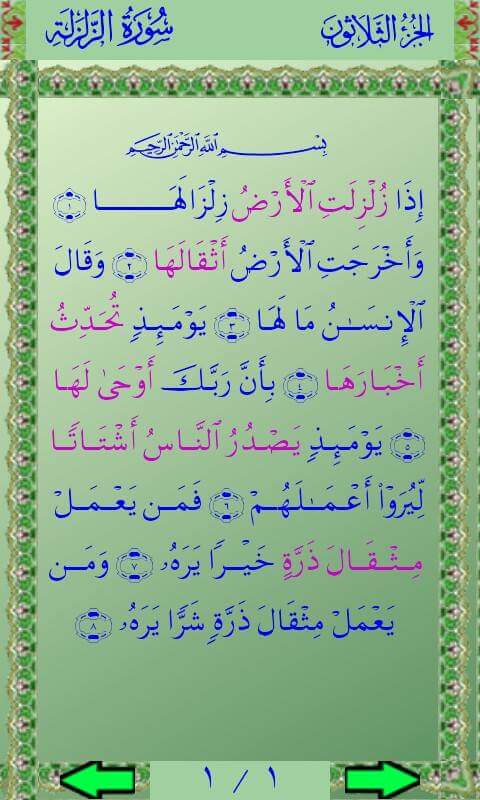 الجُزْءُ الثَّلَاثُونَ سُورَةُ الزَّلْزَلَةِ
بِسْمِ اللَّهِ الرَّحْمَٰنِ الرَّحِيمِ
إِذَا زُلْزِلَتِ ٱلْأَرْضُ زِلْزَالَهَا ١
وَأَخْرَجَتِ ٱلْأَرْضُ أَثْقَالَهَا ٢ وَقَالَ
ٱلْإِنسَـٰنُ مَا لَهَا ٣ يَوْمَئِذٍ تُحَدِّثُ
أَخْبَارَهَا ٤ بِأَنَّ رَبَّكَ أَوْحَىٰ لَهَا
٥ يَوْمَئِذٍ يَصْدُرُ ٱلنَّاسُ أَشْتَاتًا
لِّيُرَوْا۟ أَعْمَـٰلَهُمْ ٦ فَمَن يَعْمَلْ
مِثْقَالَ ذَرَّةٍ خَيْرًا يَرَهُۥ ٧ وَمَن
يَعْمَلْ مِثْقَالَ ذَرَّةٍ شَرًّا يَرَهُۥ ٨
١ / ١